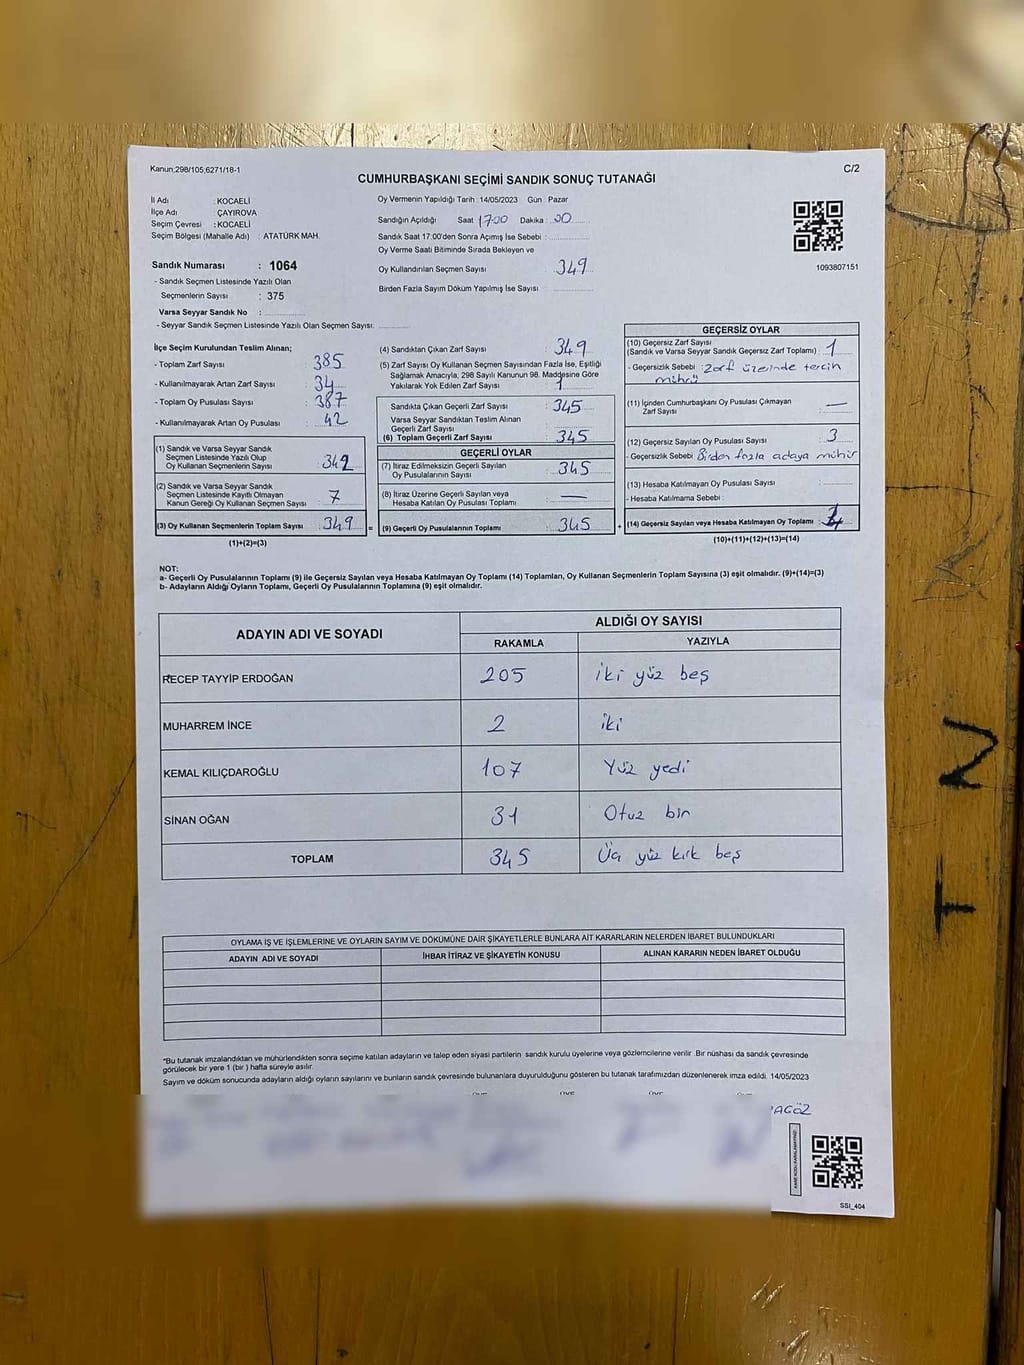 Kanun;298/105,6271/18-1
C/2
CUMHURBAŞKANI SEÇİMİ SANDIK SONUÇ TUTANAĞI
İl Adı : KOCAELİ
İlçe Adı : ÇAYIROVA
Seçim Çevresi : KOCAELİ
Seçim Bölgesi (Mahalle Adı) : ATATÜRK MAH.
Sandık Numarası : 1064
- Sandık Seçmen Listesinde Yazılı Olan
Seçmenlerin Sayısı : 375
Varsa Seyyar Sandık No :
- Seyyar Sandık Seçmen Listesinde Yazılı Olan Seçmen Sayısı:
Oy Vermenin Yapıldığı Tarih : 14/05/2023 Gün : Pazar
Sandığın Açıldığı Saat 17:00 Dakika : 00
Sandık Saat 17:00'den Sonra Açımış İse Sebebi :
Oy Verme Saati Bitiminde Sırada Bekleyen ve
Oy Kullandırılan Seçmen Sayısı : 349
Birden Fazla Sayım Döküm Yapılmış İse Sayısı :
1093807151
İlçe Seçim Kurulundan Teslim Alınan;
- Toplam Zarf Sayısı : 385
- Kullanılmayarak Artan Zarf Sayısı : 34
- Toplam Oy Pusulası Sayısı : 387
- Kullanılmayarak Artan Oy Pusulası : 42
(1) Sandık ve Varsa Seyyar Sandık
Seçmen Listesinde Yazılı Olup
Oy Kullanan Seçmenlerin Sayısı : 342
(2) Sandık ve Varsa Seyyar Sandık
Seçmen Listesinde Kayıtlı Olmayan
Kanun Gereği Oy Kullanan Seçmen Sayısı : 7
(3) Oy Kullanan Seçmenlerin Toplam Sayısı : 349 =
(1)+(2)=(3)
(4) Sandıktan Çıkan Zarf Sayısı : 349
(5) Zarf Sayısı Oy Kullanan Seçmen Sayısından Fazla İse, Eşitliği
Sağlamak Amacıyla, 298 Sayılı Kanunun 98. Maddesine Göre
Yakılarak Yok Edilen Zarf Sayısı : 1
Sandıkta Çıkan Geçerli Zarf Sayısı : 345
Varsa Seyyar Sandıktan Teslim Alınan
Geçerli Zarf Sayısı :
(6) Toplam Geçerli Zarf Sayısı : 345
GEÇERLİ OYLAR
(7) İtiraz Edilmeksizin Geçerli Sayılan
Oy Pusulalarının Sayısı : 345
(8) İtiraz Üzerine Geçerli Sayılan veya
Hesaba Katılan Oy Pusulası Toplamı : —
(9) Geçerli Oy Pusulalarının Toplamı : 345 +
GEÇERSİZ OYLAR
(10) Geçersiz Zarf Sayısı
(Sandık ve Varsa Seyyar Sandık Geçersiz Zarf Toplamı) : 1
- Geçersizlik Sebebi : Zarf üzerinde tercih
mührü
(11) İçinden Cumhurbaşkanı Oy Pusulası Çıkmayan
Zarf Sayısı : —
(12) Geçersiz Sayılan Oy Pusulası Sayısı : 3
- Geçersizlik Sebebi Birden fazla adaya mühür
(13) Hesaba Katılmayan Oy Pusulası Sayısı :
- Hesaba Katılmama Sebebi :
(14) Geçersiz Sayılan veya Hesaba Katılmayan Oy Toplamı : 4
(10)+(11)+(12)+(13)=(14)
NOT:
a- Geçerli Oy Pusulalarının Toplamı (9) ile Geçersiz Sayılan veya Hesaba Katılmayan Oy Toplamı (14) Toplamları, Oy Kullanan Seçmenlerin Toplam Sayısına (3) eşit olmalıdır. (9)+(14)=(3)
b- Adayların Aldığı Oyların Toplamı, Geçerli Oy Pusulalarının Toplamına (9) eşit olmalıdır.
ADAYIN ADI VE SOYADI
ALDIĞI OY SAYISI
RAKAMLA YAZIYLA
RECEP TAYYİP ERDOĞAN 205 iki yüz beş
MUHARREM İNCE 2 iki
KEMAL KILIÇDAROĞLU 107 Yüz yedi
SİNAN OĞAN 31 Otuz bir
TOPLAM 345 Üç yüz kırk beş
OYLAMA İŞ VE İŞLEMLERİNE VE OYLARIN SAYIM VE DÖKÜMÜNE DAİR ŞİKAYETLERLE BUNLARA AİT KARARLARIN NELERDEN İBARET BULUNDUKLARI
ADAYIN ADI VE SOYADI İHBAR İTİRAZ VE ŞİKAYETİN KONUSU ALINAN KARARIN NEDEN İBARET OLDUĞU
*Bu tutanak imzalandıktan ve mühürlendikten sonra seçime katılan adayların ve talep eden siyasi partilerin sandık kurulu üyelerine veya gözlemcilerine verilir. Bir nüshası da sandık çevresinde
görülecek bir yere 1 (bir ) hafta süreyle asılır.
Sayım ve döküm sonucunda adayların aldığı oyların sayılarını ve bunların sandık çevresinde bulunanlara duyurulduğunu gösteren bu tutanak tarafımızdan düzenlenerek imza edildi. 14/05/2023
AGÖZ
SSI_404